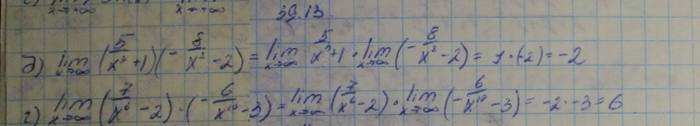 39.13
д) lim x→∞ (5/x³ + 1)(-8/x² - 2) = lim x→∞ 5/x³ + 1 · lim x→∞ (-8/x² - 2) = 1 · (-2) = -2
г) lim x→∞ (7/x⁶ - 2) · (-6/x¹⁰ - 3) = lim x→∞ (7/x⁶ - 2) · lim x→∞ (-6/x¹⁰ - 3) = -2 · -3 = 6